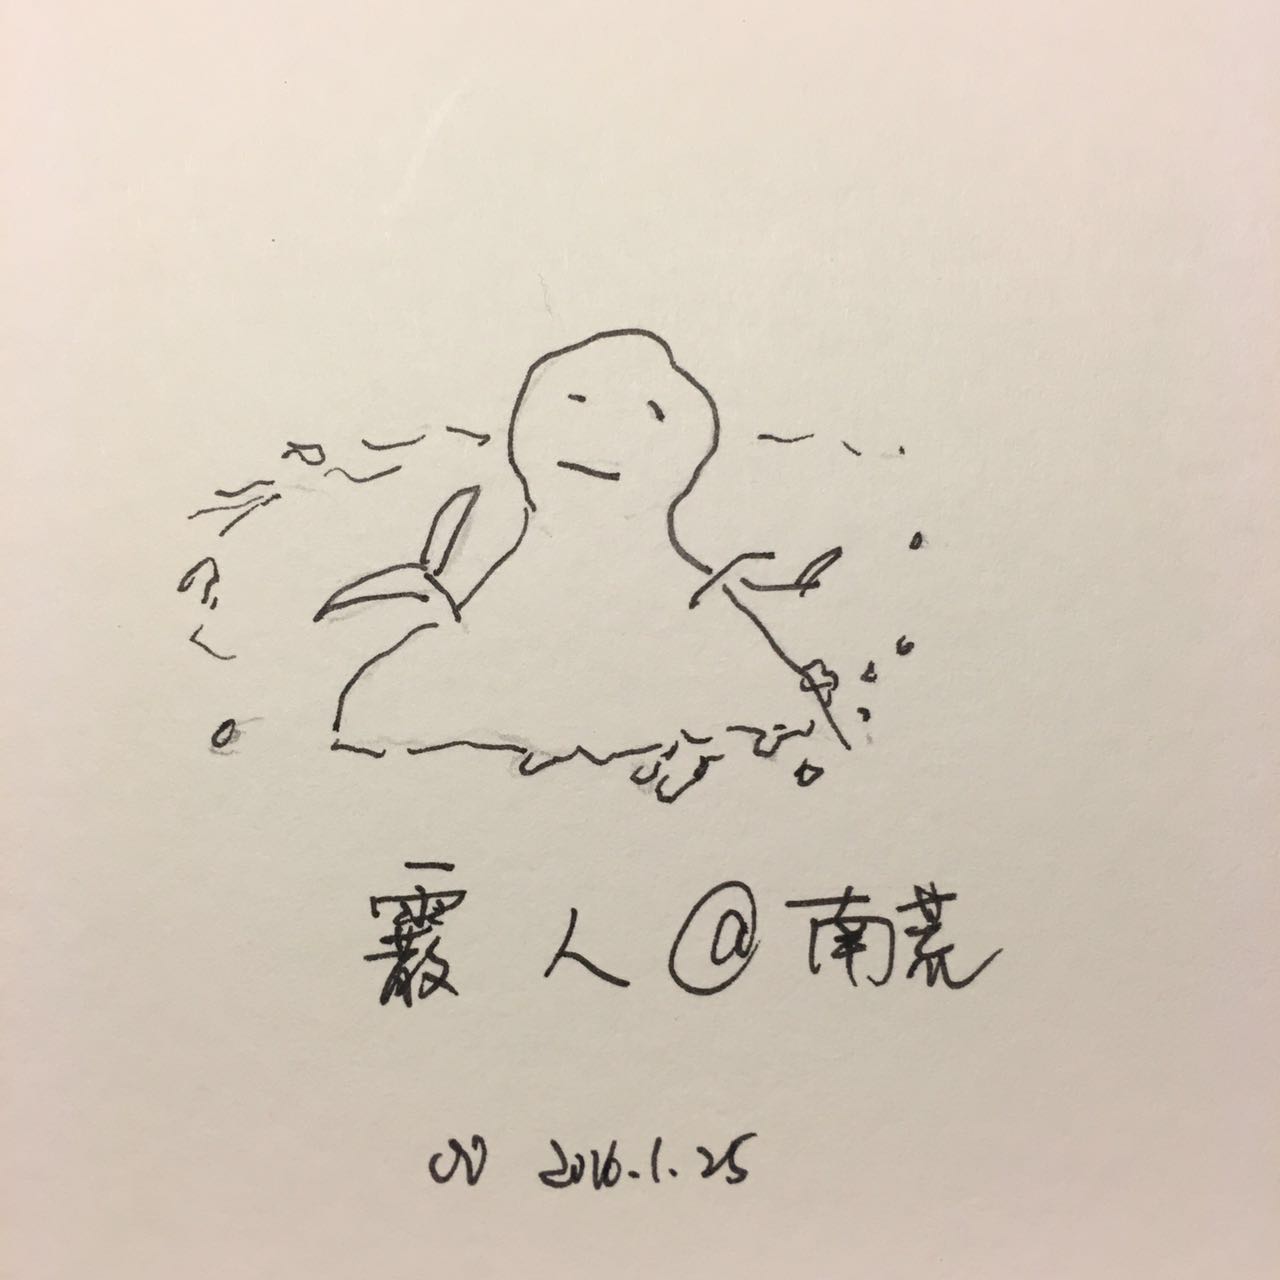 霰人@南荒
2016.1.25